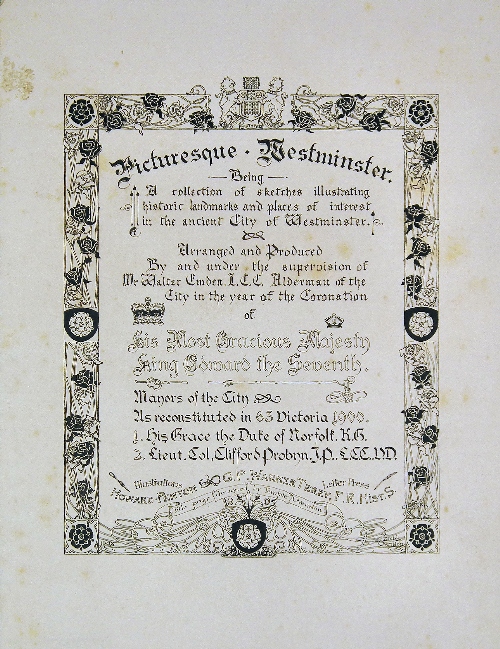 Picturesque · Westminster.
Being
A collection of sketches illustrating
historic landmarks and places of interest
in the ancient City of Westminster.
Arranged and Produced
By and under the supervision of
Mr Walter Emden L.C.C. Alderman of the
City in the year of the Coronation
of
His Most Gracious Majesty
King Edward the Seventh.
Mayors of the City
As reconstituted in 63 Victoria 1900.
1. His Grace the Duke of Norfolk. K.G.
2. Lieut. Col. Clifford Probyn. J.P., L.C.C. V.D.
Illustrations
Letter Press
Howard Penton
F.R.Hist.S.